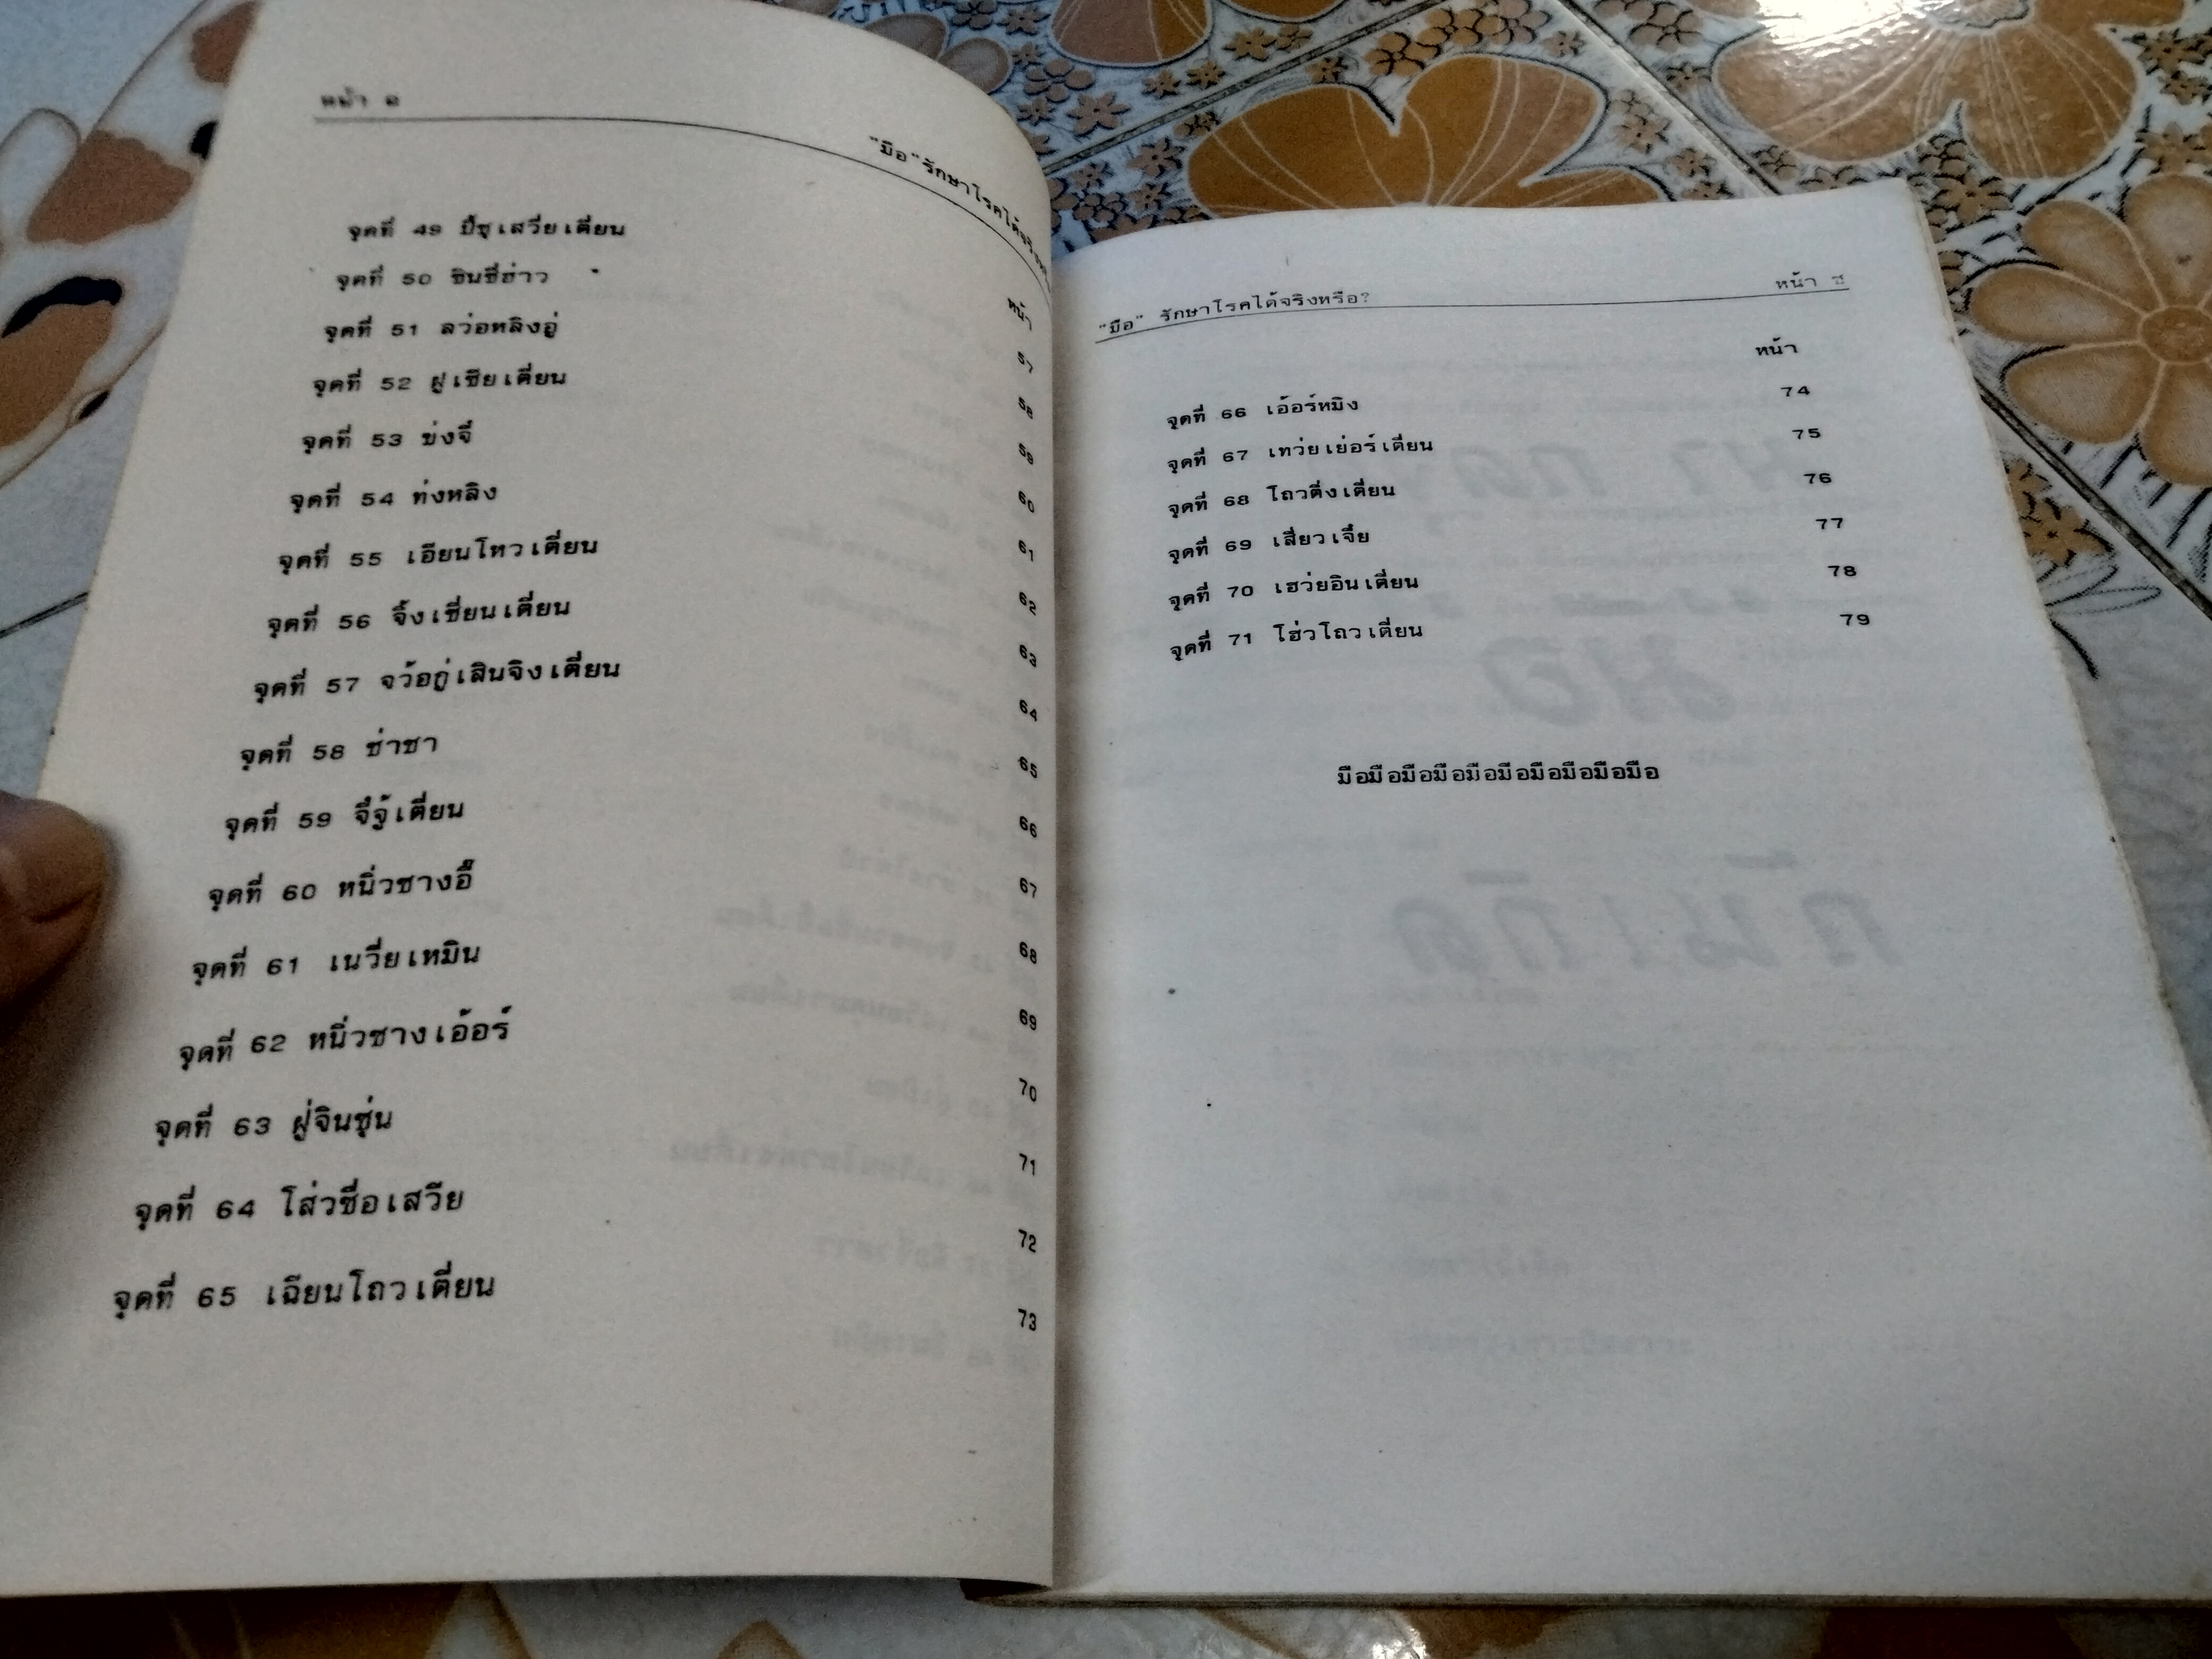 "มือ"รักษาโรคได้จริง
หน้า
จุดที่ 49 ปี้ซูเสวียเตี่ยน 57
จุดที่ 50 ชินชี่ฮ่าว 58
จุดที่ 51 ลว่อหลิงอู่ 59
จุดที่ 52 ฝูเชียเตี่ยน 60
จุดที่ 53 ข่งจี๋ 61
จุดที่ 54 ท่งหลิง 62
จุดที่ 55 เอียนโหวเตี่ยน 63
จุดที่ 56 จิ้งเซี่ยนเตี่ยน 64
จุดที่ 57 จว้อกู่เสินจิงเตี่ยน 65
จุดที่ 58 ซ่าซา 66
จุดที่ 59 จี๋จู้เตี่ยน 67
จุดที่ 60 หนิ่วซางอี๊ 68
จุดที่ 61 เนวี่ยเหมิน 69
จุดที่ 62 หนิ่วซางเอ้อร์ 70
จุดที่ 63 ฝู่จินซุ่น 71
จุดที่ 64 โส่วซื่อเสวีย 72
จุดที่ 65 เฉียนโถวเตี่ยน 73
"มือ" รักษาโรคได้จริงหรือ? หน้า ช
หน้า
จุดที่ 66 เอ้อร์หมิง 74
จุดที่ 67 เทว่ยเย่อร์เตี่ยน 75
จุดที่ 68 โถวติ่งเตี่ยน 76
จุดที่ 69 เสี่ยวเจี๋ย 77
จุดที่ 70 เฮว่ยอินเตี่ยน 78
จุดที่ 71 โฮ่วโถวเตี่ยน 79
มือมือมือมือมือมือมือมือมือมือ